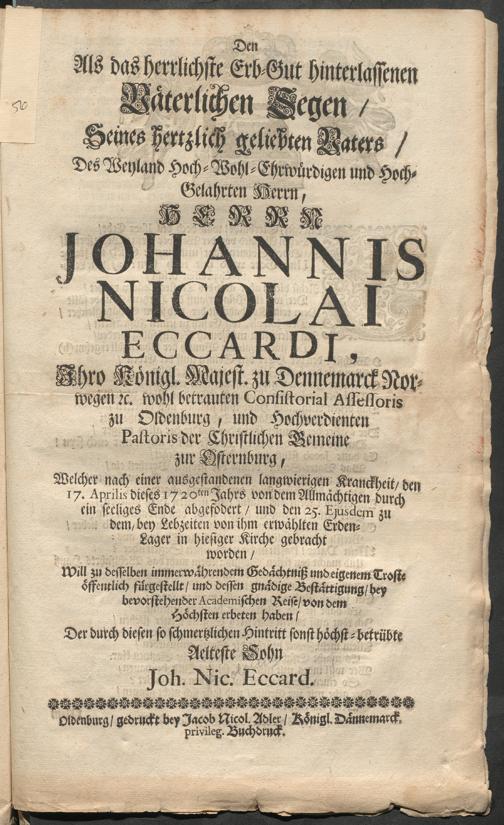 50
Den
Als das herrlichste Erb-Gut hinterlassenen
Väterlichen Segen /
Seines hertzlich geliebten Vaters /
Des Weyland Hoch-Wohl-Ehrwürdigen und Hoch-
Gelahrten Herrn,
HERRN
JOHANNIS
NICOLAI
ECCARDI,
Ihro Königl. Majest. zu Dennemarck Nor-
wegen ꝛc. wohl betrauten Consistorial Assessoris
zu Oldenburg, und Hochverdienten
Pastoris der Christlichen Gemeine
zur Osternburg,
Welcher nach einer ausgestandenen langwierigen Kranckheit/ den
17. Aprilis dieses 1720ten Jahrs von dem Allmächtigen durch
ein seeliges Ende abgefodert/ und den 25. Ejusdem zu
dem, bey Lebzeiten von ihm erwählten Erden-
Lager in hiesiger Kirche gebracht
worden/
Will zu desselben immerwährendem Gedächtniß und eigenem Trost-
öffentlich fürgestellt/ und dessen gnädige Bestättigung/ bey
bevorstehender Academischen Reise/ von dem
Höchsten erbeten haben/
Der durch diesen so schmertzlichen Hintritt sonst höchst-betrübte
Aelteste Sohn
Joh. Nic. Eccard.
Oldenburg/ gedruckt bey Jacob Nicol. Adler/ Königl. Dännemarck.
privileg. Buchdruck.